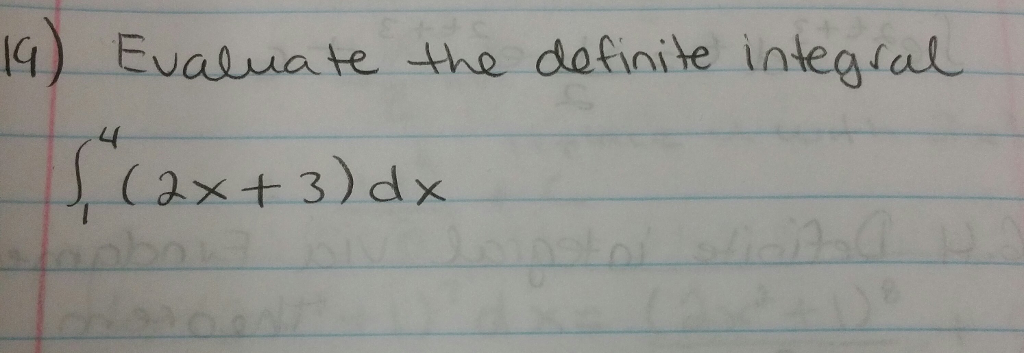 19) Evaluate the definite integral
∫₁⁴ (2x + 3) dx